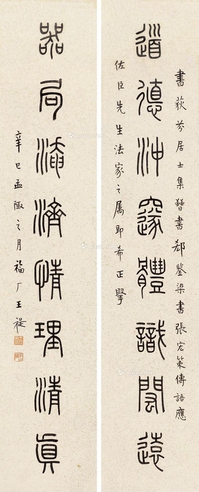 書荻芬居士集晉書郗鑒梁書張宏策傳語應
道德沖邃體識閎遠
佐臣先生法家之屬即希正
器局淹濟情理清貞
辛巳孟陬之月福厂王禔